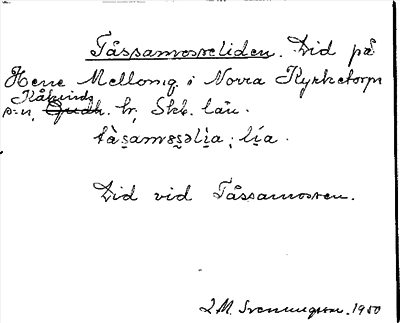 Tåssamosseliden. Lid på
Hene Mellomg. i Norra Kyrketorps
Kåkinds
s-n, Gudh. hr, Skb. län.
tàsamosəlìa; lía.
Lid vid Tåssamossen.
J.M. Svenungsson. 1950